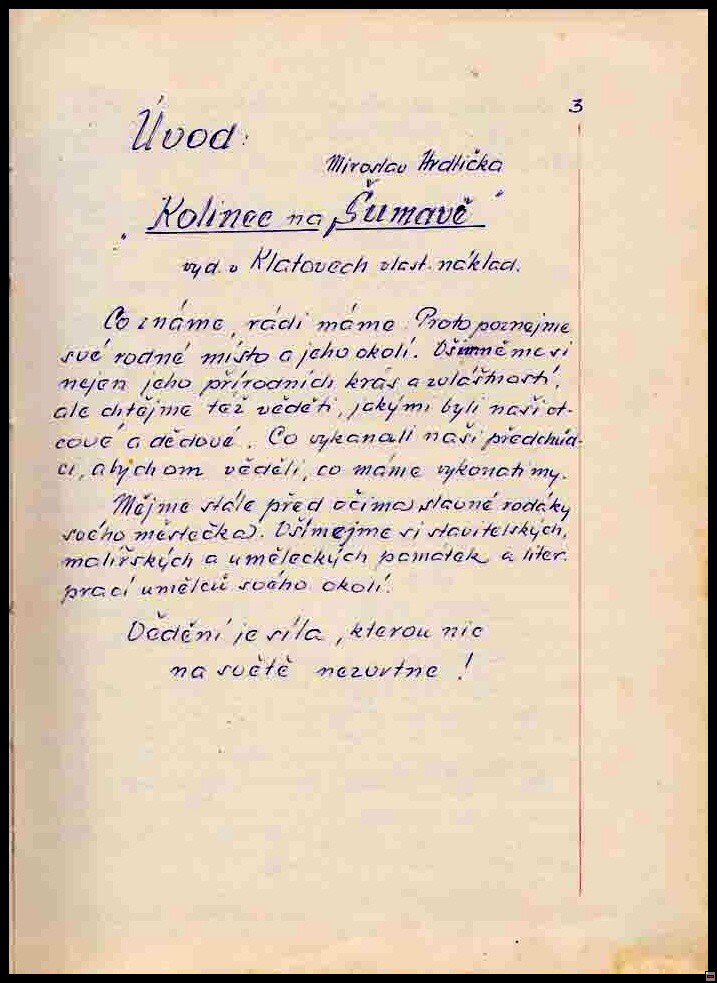 3
Úvod:
Miroslav Hrdlička
„Kolinec na Šumavě"
vyd. v Klatovech vlast. náklad.
Co známe, rádi máme. Proto poznejme
své rodné místo a jeho okolí. Všimněme si
nejen jeho přírodních krás a zvláštností,
ale chtějme též věděti, jakými byli naši ot-
cové a dědové. Co vykonali naši předchůd-
ci, abychom věděli, co máme vykonati my.
Mějme stále před očima slavné rodáky
svého městečka. Všímejme si stavitelských,
malířských a uměleckých památek a liter.
prací umělců svého okolí.
Vědění je síla, kterou nic
na světě nezvrtne!